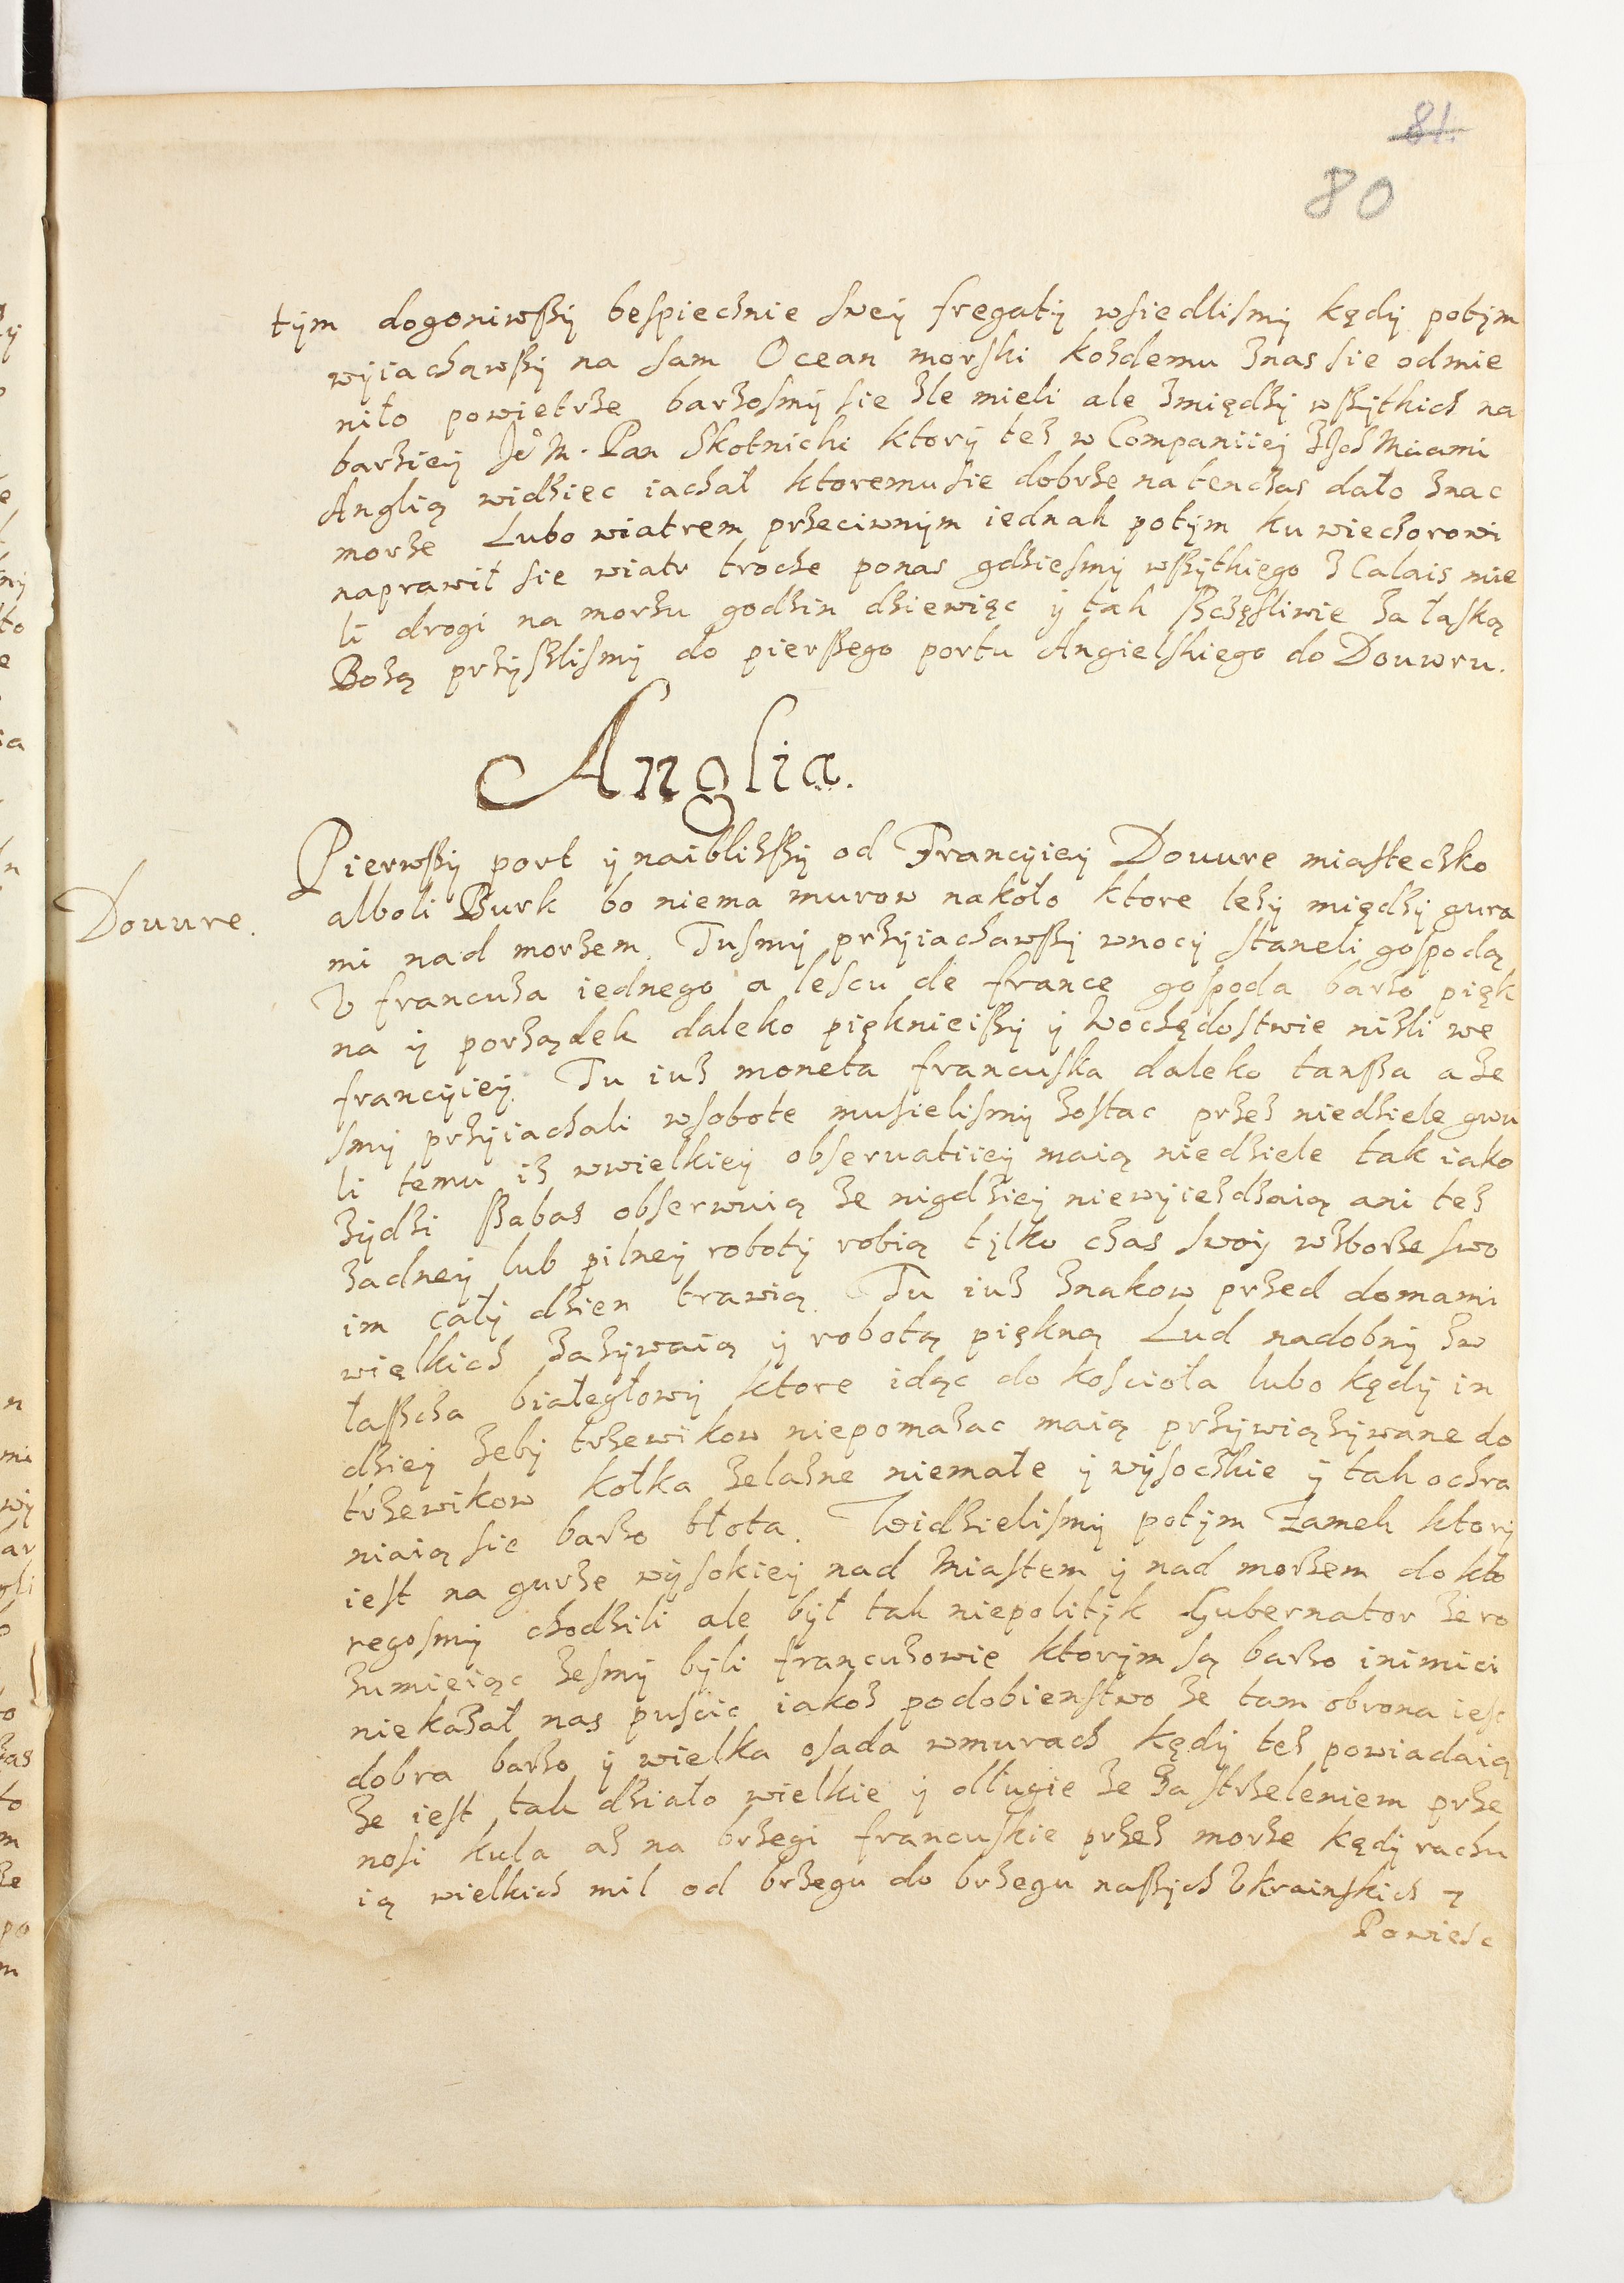 81.
80
tym dogoniwszy bespiecznie swey fregaty wsiedlismy kędy potym
wyiachawszy na sam Ocean morski kozdemu znas sie odmie
niło powietrze barzosmy sie zle mieli ale zmiędzy wszytkich na
barziey Je͛ M. Pan Skotnicki ktory tez w Companiiey z Ichmciami
Anglią widziec iachał ktoremu sie dobrze natenczas dało znac
morze Lubo wiatrem przeciwnym iednak potym ku wieczorowi
naprawił sie wiatr troche ponas gdziesmy wszytkiego z Calais mie
li drogi na morzu godzin dziewięc y tak szczęsliwie za łaską
Bozą przyszlismy do pierszego portu Angielskiego do Douwru.
Anglia.
Pierwszy port y naiblizszy od Francyiey Douure miasteczko
Douure.
alboli Burk bo niema murow nakoło ktore lezy między gura
mi nad morzem. Tusmy przyiachawszy wnocy staneli gospodą
V francuza iednego a lescu de france gospoda barzo pięk
na y porządek daleko pięknieiszy y wochędostwie nizli we
francyiey. Tu iuz moneta francuska daleko tansza a ze
smy przyiachali wsobote musielismy zostac przez niedziele gwu
li temu iz wwielkiey obseruatiiey maią niedziele tak iako
zydzi szabas obserwuią ze nigdziey niewyiezdzaią ani tez
zadney lub pilney roboty robią tylko czas swoy wzborze swo
im cały dzien trawią. Tu iuz znakow przed domami
więlkich zazywaią y robotą piękną Lud nadobny zw
łaszcza białegłowy ktore idąc do kosciola lubo kędy in
dziey zeby trzewikow niepomazac maią przywiązywane do
trzewikow kołka zelazne niemałe y wysoczkie y tak ochra
niaią sie barzo błota. Widzielismy potym Zamek ktory
iest na gurze wysokiey nad Miastem y nad morzem do kto
regosmy chodzili ale był tak niepolityk Gubernator ze ro
zumieiąc zesmy byli francuzowie ktorym są barzo inimici
niekazał nas puscic iakoz podobienstwo ze tam obrona iesc
dobra barzo y wielka osada wmurach kędy tez powiadaią
ze iest tak działo wielkie y długie ze za strzeleniem prze
nosi kula az na brzegi francuskie przez morze kędy rachu
ią wielkich mil od brzegu do brzegu naszych Vkrainskich 7
Powiesc